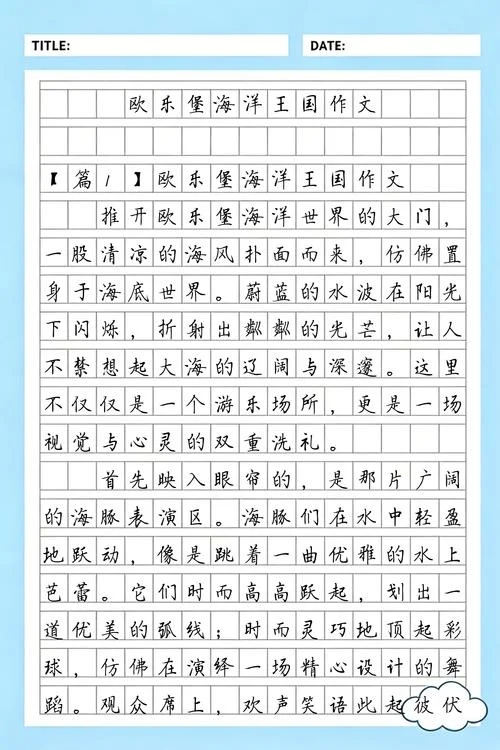 TITLE:
DATE:
欧乐堡海洋王国作文
【篇1】欧乐堡海洋王国作文
推开欧乐堡海洋世界的大门，
一股清凉的海风扑面而来，仿佛置
身于海底世界。蔚蓝的水波在阳光
下闪烁，折射出粼粼的光芒，让人
不禁想起大海的辽阔与深邃。这里
不仅仅是一个游乐场所，更是一场
视觉与心灵的双重洗礼。
首先映入眼帘的，是那片广阔
的海豚表演区。海豚们在水中轻盈
地跃动，像是跳着一曲优雅的水上
芭蕾。它们时而高高跃起，划出一
道优美的弧线；时而灵巧地顶起彩
球，仿佛在演绎一场精心设计的舞
蹈。观众席上，欢声笑语此起彼伏